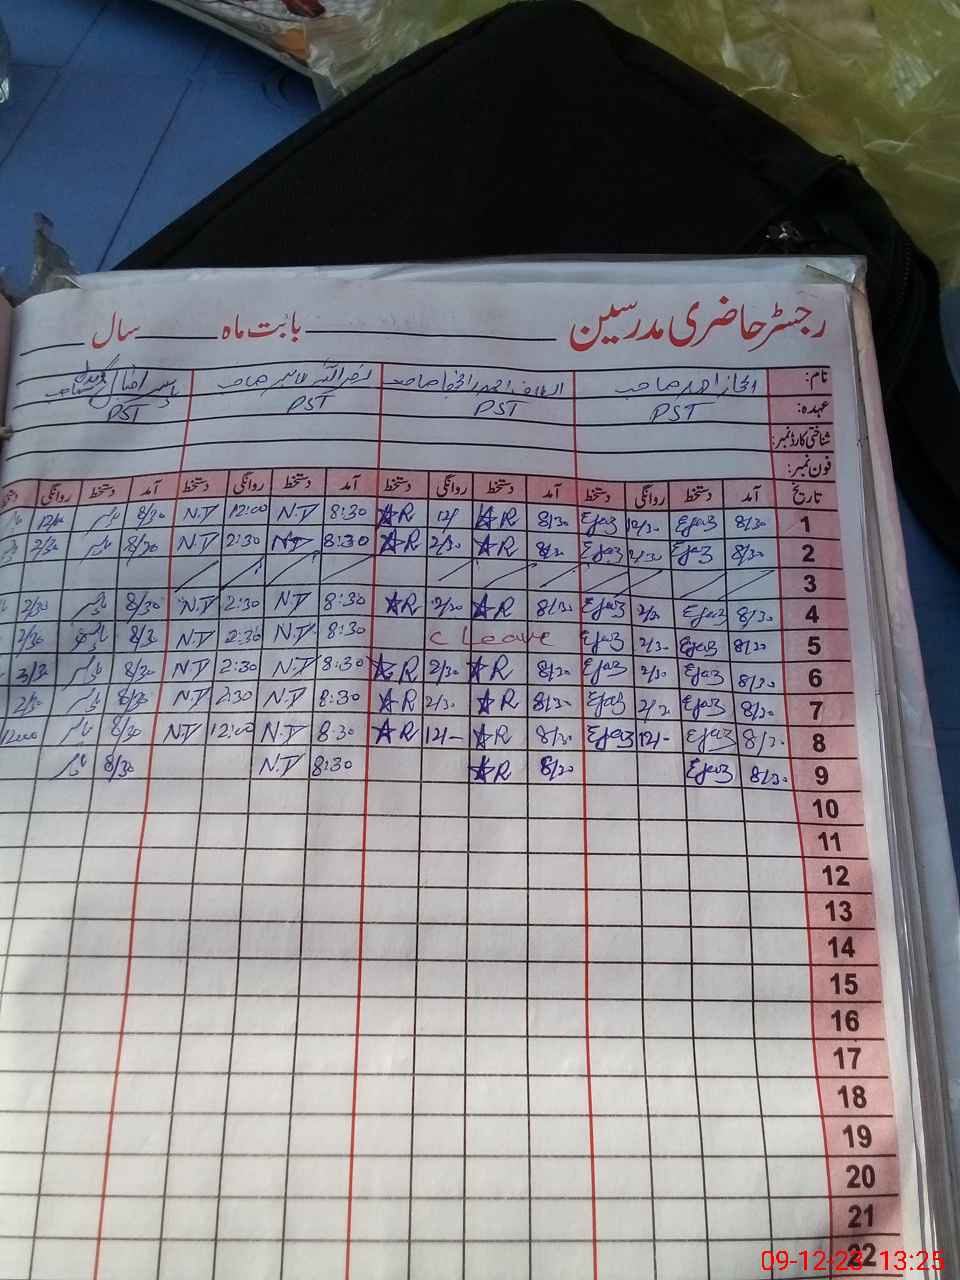 رجسٹر حاضری مدرسین بابت ماہ سال
نام: اعجاز احمد صاحب
عہدہ: PST PST PST PST
شناختی کارڈ نمبر:
فون نمبر:
تاریخ آمد دستخط روانگی دستخط آمد دستخط روانگی دستخط آمد دستخط روانگی دستخط آمد دستخط روانگی
1 8/30 Ejaz 12/30 Ejaz 8/30 AR 12/ AR 8:30 N.T 12:00 N.T 8/30
2 8/30 Ejaz 2/30 Ejaz 8/30 AR 2/30 AR 8:30 N.T 2:30 N.T 8/30 2/30
3
4 8/30 Ejaz 2/30 Ejaz 8/30 AR 2/30 AR 8:30 N.T 2:30 N.T 8/30 2/30
5 8/30 Ejaz 2/30 Ejaz c Leave 8:30 N.T 2:30 N.T 8/30 2/30
6 8/30 Ejaz 2/30 Ejaz 8/30 AR 2/30 AR 8:30 N.T 2:30 N.T 8/30
7 8/30 Ejaz 2/30 Ejaz 8/30 AR 2/30 AR 8:30 N.T 2:30 N.T 8/30 2/30
8 8/30 Ejaz 12/- Ejaz 8/30 AR 12/- AR 8:30 N.T 12:00 N.T 8/30 12:00
9 8/30 Ejaz 8/30 AR 8:30 N.T 8/30
10
11
12
13
14
15
16
17
18
19
20
21
22
09-12-23 13:25